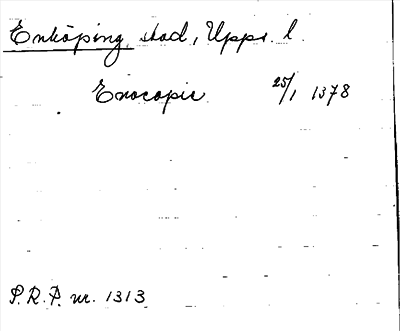 Enköping, stad, Upps. l.
Enocopie 25/1 1378
S.R.P. nr. 1313